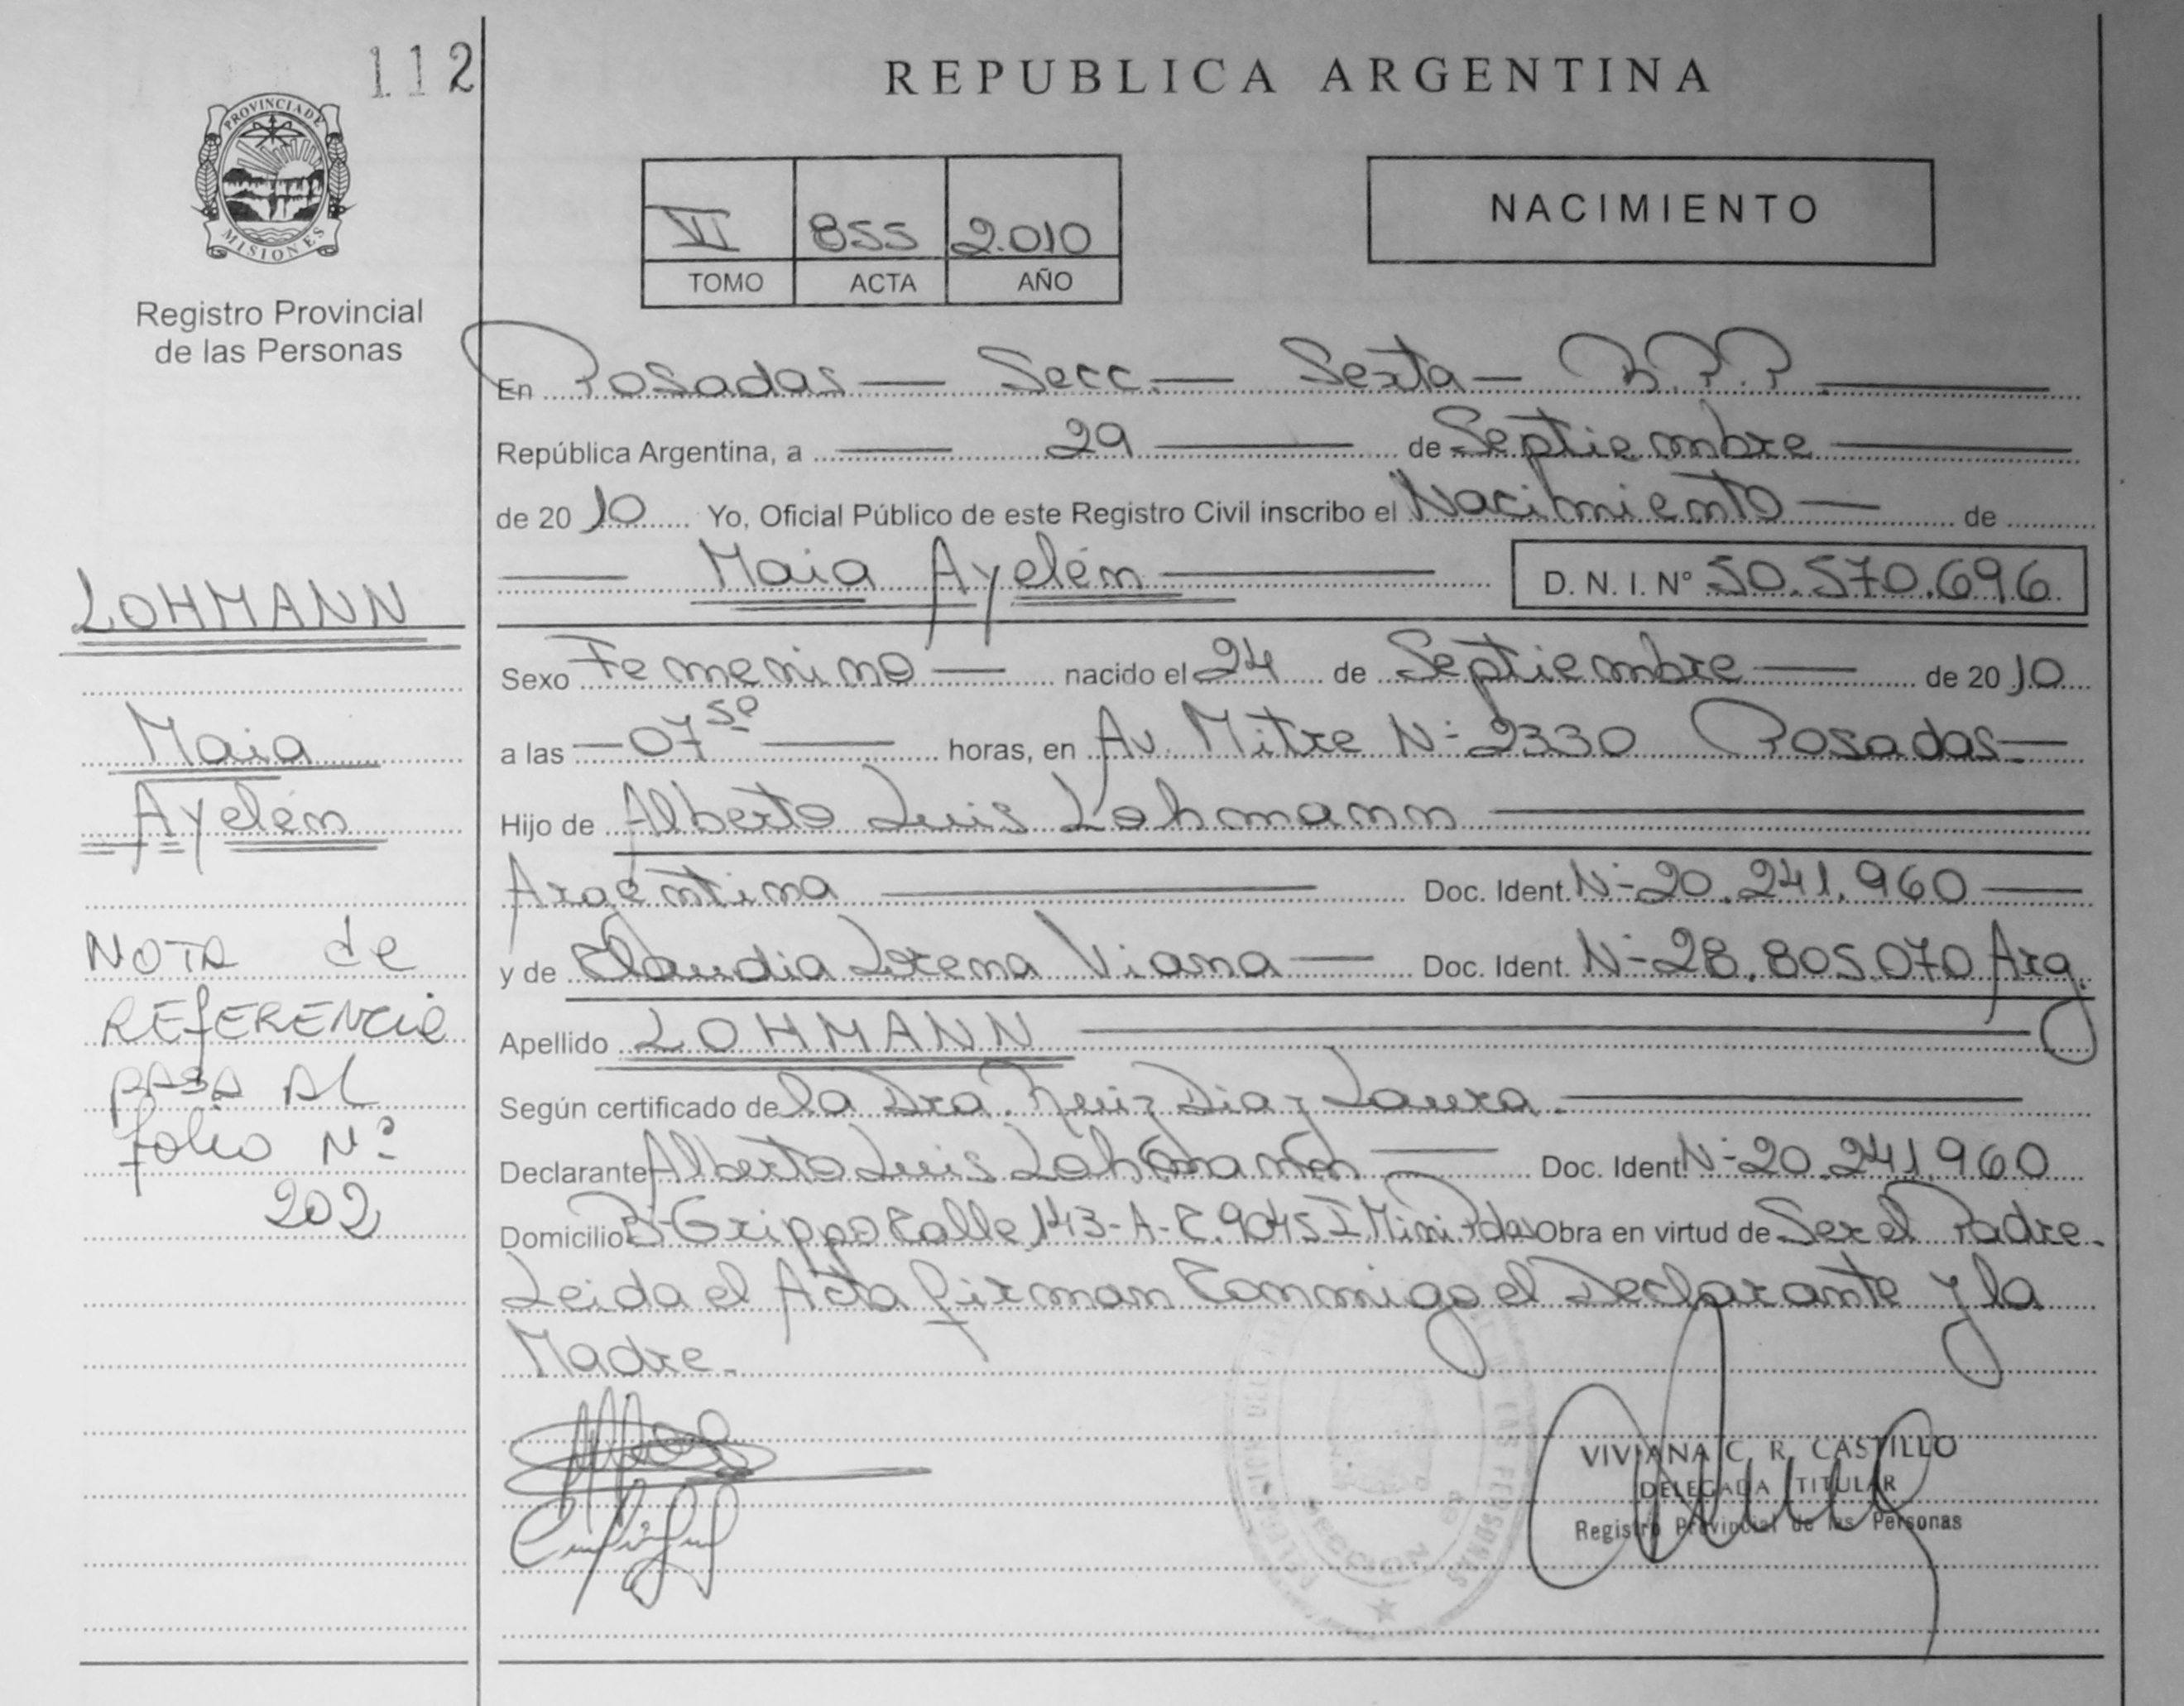 112
PROVINCIA DE
MISIONES
Registro Provincial
de las Personas
LOHMANN
Maia
Ayelén
NOTA de
REfERENCIA
PASA AL
folio Nº
202
REPUBLICA ARGENTINA
VI 855 2.010
TOMO ACTA AÑO
NACIMIENTO
En Posadas — Secc. — Sexta — R.P.P.
República Argentina, a — 29 — de Septiembre —
de 2010 Yo, Oficial Público de este Registro Civil inscribo el Nacimiento — de
— Maia Ayelém — D. N. I. Nº 50.570.696
Sexo Femenino — nacido el 24 de Septiembre — de 2010
a las — 07 50 — horas, en Av. Mitre Nº 2330 Posadas —
Hijo de Alberto Luis Lohmann —
Argentina — Doc. Ident. Nº 20.241.960 —
y de Claudia Lorena Viana — Doc. Ident. Nº 28.805.070 Arg
Apellido LOHMANN —
Según certificado de la Dra. Ruiz Diaz Laura. —
Declarante Alberto Luis Lohmann — Doc. Ident. Nº 20.241.960
Domicilio Bº Grippo Calle 143-A-C. 9045 I. Mini Pdas Obra en virtud de Ser el Padre.
Leida el Acta firman Conmigo el Declarante y la
Madre.
VIVIANA C. R. CASTILLO
DELEGADA TITULAR
Registro Provincial de las Personas
SECCION 6ª